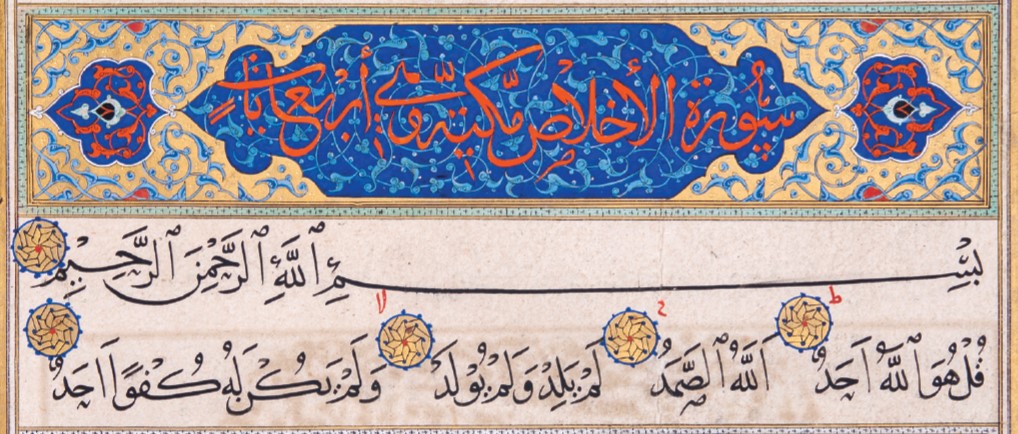 سُورَة الأخلاص مَكيَّة وَهي أربَع ايَات
بِسْمِ ٱللَّهِ ٱلرَّحْمٰنِ ٱلرَّحِيمِ
قُلْ هُوَ ٱللَّهُ اَحَدٌ ط اَللَّهُ ٱلصَّمَدُ لَمْ يَلِدْ وَلَمْ يُولَدْ لا وَلَمْ يَكُنْ لَهُ كُفْوًا اَحَدٌ